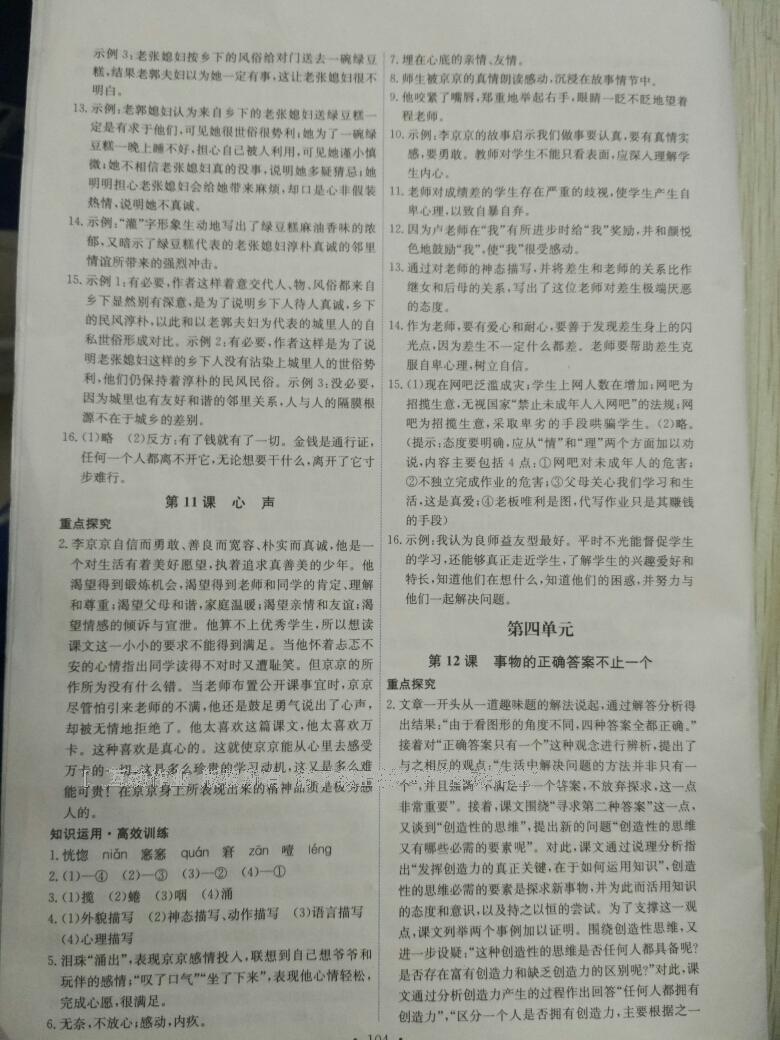 示例3:老张媳妇按乡下的风俗给对门送去一碗绿豆
糕,结果老郭夫妇以为她一定有事,这让老张媳妇很不
明白。
13.示例:老郭媳妇认为来自乡下的老张媳妇送绿豆糕一
定是有求于他们,可见她很世俗很势利;她为了一碗绿
豆糕一晚上睡不好,担心自己被人利用,可见她谨小慎
微;她不相信老张媳妇真的没事,说明她多疑猜忌;她
明明担心老张媳妇会给她带来麻烦,却口是心非假装
热情,说明她不真诚。
14.示例:“灌”字形象生动地写出了绿豆糕麻油香味的浓
郁,又暗示了绿豆糕代表的老张媳妇淳朴真诚的邻里
情谊所带来的强烈冲击。
15.示例1:有必要,作者这样着意交代人、物、风俗都来自
乡下显然别有深意,是为了说明乡下人待人真诚,乡下
的民风淳朴,以此和以老郭夫妇为代表的城里人的自
私世俗形成对比。示例2:有必要,作者这样是为了说
明老张媳妇这样的乡下人没有沾染上城里人的世俗势
利,他们仍保持着淳朴的民风民俗。示例3:没必要,
因为城里也有友好和谐的邻里关系,人与人的隔膜根
源不在于城乡的差别。
16.(1)略 (2)反方:有了钱就有了一切。金钱是通行证,
任何一个人都离不开它,无论想要干什么,离开了它寸
步难行。
第11课 心 声
重点探究
2.李京京自信而勇敢、善良而宽容、朴实而真诚,他是一
个对生活有着美好愿望,执着追求真善美的少年。他
渴望得到锻炼机会,渴望得到老师和同学的肯定、理解
和尊重;渴望父母和谐,家庭温暖;渴望亲情和友谊;渴
望情感的倾诉与宣泄。他算不上优秀学生,所以想读
课文这一小小的要求不能得到满足。当他怀着忐忑不
安的心情指出同学读得不对时又遭耻笑。但京京的所
作所为没有什么错。当老师布置公开课事宜时,京京
尽管怕引来老师的不满,他还是鼓足勇气说出了心声,
却被无情地拒绝了。他太喜欢这篇课文,他太喜欢万
卡。这种喜欢是真心的。这就使京京能从心里去感受
万卡的一切,这是多么珍贵的学习动机,这又是多么难
能可贵!在京京身上所表现出来的精神品质是极为感
人的。
知识运用·高效训练
1.恍惚 niǎn 窸窣 quán 窘 zān 噎 léng
2.(1)—④ (2)—③ (3)—② (4)—①
3.(1)揽 (2)蜷 (3)咽 (4)涌
4.(1)外貌描写 (2)神态描写、动作描写 (3)语言描写
(4)心理描写
5.泪珠“涌出”,表现京京感情投入,联想到自己想爷爷和
玩伴的感情;“叹了口气”“坐了下来”,表现他心情轻松,
完成心愿,很满足。
6.无奈,不放心;感动,内疚。
7.埋在心底的亲情、友情。
8.师生被京京的真情朗读感动,沉浸在故事情节中。
9.他咬紧了嘴唇,郑重地举起右手,眼睛一眨不眨地望着
程老师。
10.示例:李京京的故事启示我们做事要认真,要有真情实
感,要勇敢。教师对学生不能只看表面,应深入理解学
生内心。
11.老师对成绩差的学生存在严重的歧视,使学生产生自
卑心理,以致自暴自弃。
12.因为卢老师在“我”有所进步时给“我”奖励,并和颜悦
色地鼓励“我”,使“我”很受感动。
13.通过对老师的神态描写,并将差生和老师的关系比作
继女和后母的关系,写出了这位老师对差生极端厌恶
的态度。
14.作为老师,要有爱心和耐心,要善于发现差生身上的闪
光点,因为差生不一定什么都差。老师要帮助差生克
服自卑心理,树立自信。
15.(1)现在网吧泛滥成灾;学生上网人数在增加;网吧为
招揽生意,无视国家“禁止未成年人入网吧”的法规;网
吧为招揽生意,采取卑劣的手段哄骗学生。(2)略。
(提示:态度要明确,应从“情”和“理”两个方面加以劝
说,内容主要包括4点:①网吧对未成年人的危害;
②不独立完成作业的危害;③父母关心我们学习和生
活,这是真爱;④老板唯利是图,代写作业只是其赚钱
的手段)
16.示例:我认为良师益友型最好。平时不光能督促学生
的学习,还能够真正走近学生,了解学生的兴趣爱好和
特长,知道他们在想什么,知道他们的困惑,并努力与
他们一起解决问题。
第四单元
第12课 事物的正确答案不止一个
重点探究
2.文章一开头从一道趣味题的解法说起,通过解答分析得
出结果:“由于看图形的角度不同,四种答案全都正确。”
接着对“正确答案只有一个”这种观念进行辨析,提出了
与之相反的观点:“生活中解决问题的方法并非只有一
个”,并且强调“不满足于一个答案,不放弃探求,这一点
非常重要”。接着,课文围绕“寻求第二种答案”这一点,
又谈到“创造性的思维”,提出新的问题“创造性的思维
又有哪些必需的要素呢”。对此,课文通过说理分析指
出“发挥创造力的真正关键,在于如何运用知识”,创造
性的思维必需的要素是探求新事物,并为此而活用知识
的态度和意识,以及持之以恒的尝试。为了支撑这一观
点,课文列举两个事例加以证明。围绕创造性思维,又
进一步设疑:“这种创造性的思维是否任何人都具备呢?
是否存在富有创造力和缺乏创造力的区别呢?”对此,课
文通过分析创造力产生的过程作出回答“任何人都拥有
创造力”,“区分一个人是否拥有创造力,主要根据之一
104